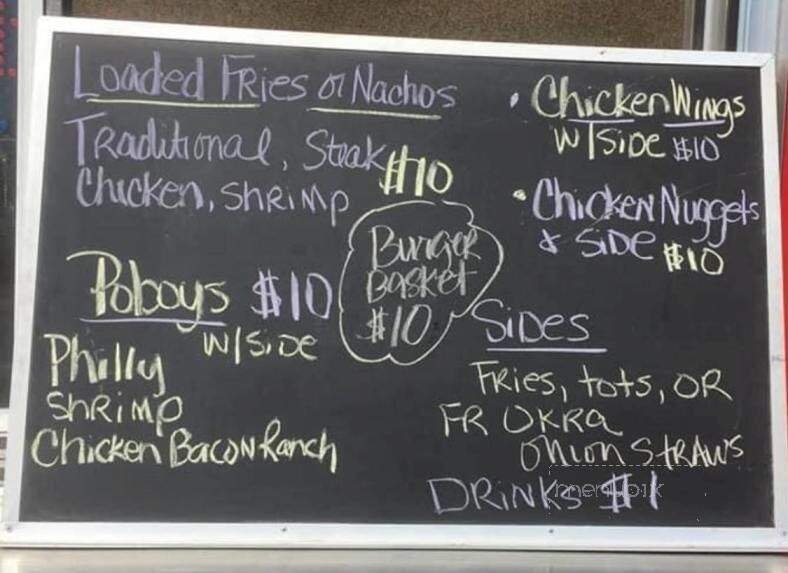 Loaded FRies or Nachos
TRaditional, Steak
Chicken, SHRimp $10
Poboys $10
W/SiDe
Philly
SHRiMp
Chicken BacoN Ranch
Burger
Basket
$10
• Chicken Wings
W/SiDe $10
• Chicken Nuggets
& SiDe $10
SiDes
FRies, tots, OR
FR OKRa
ONion StRAWS
DRiNKS $1
menupix